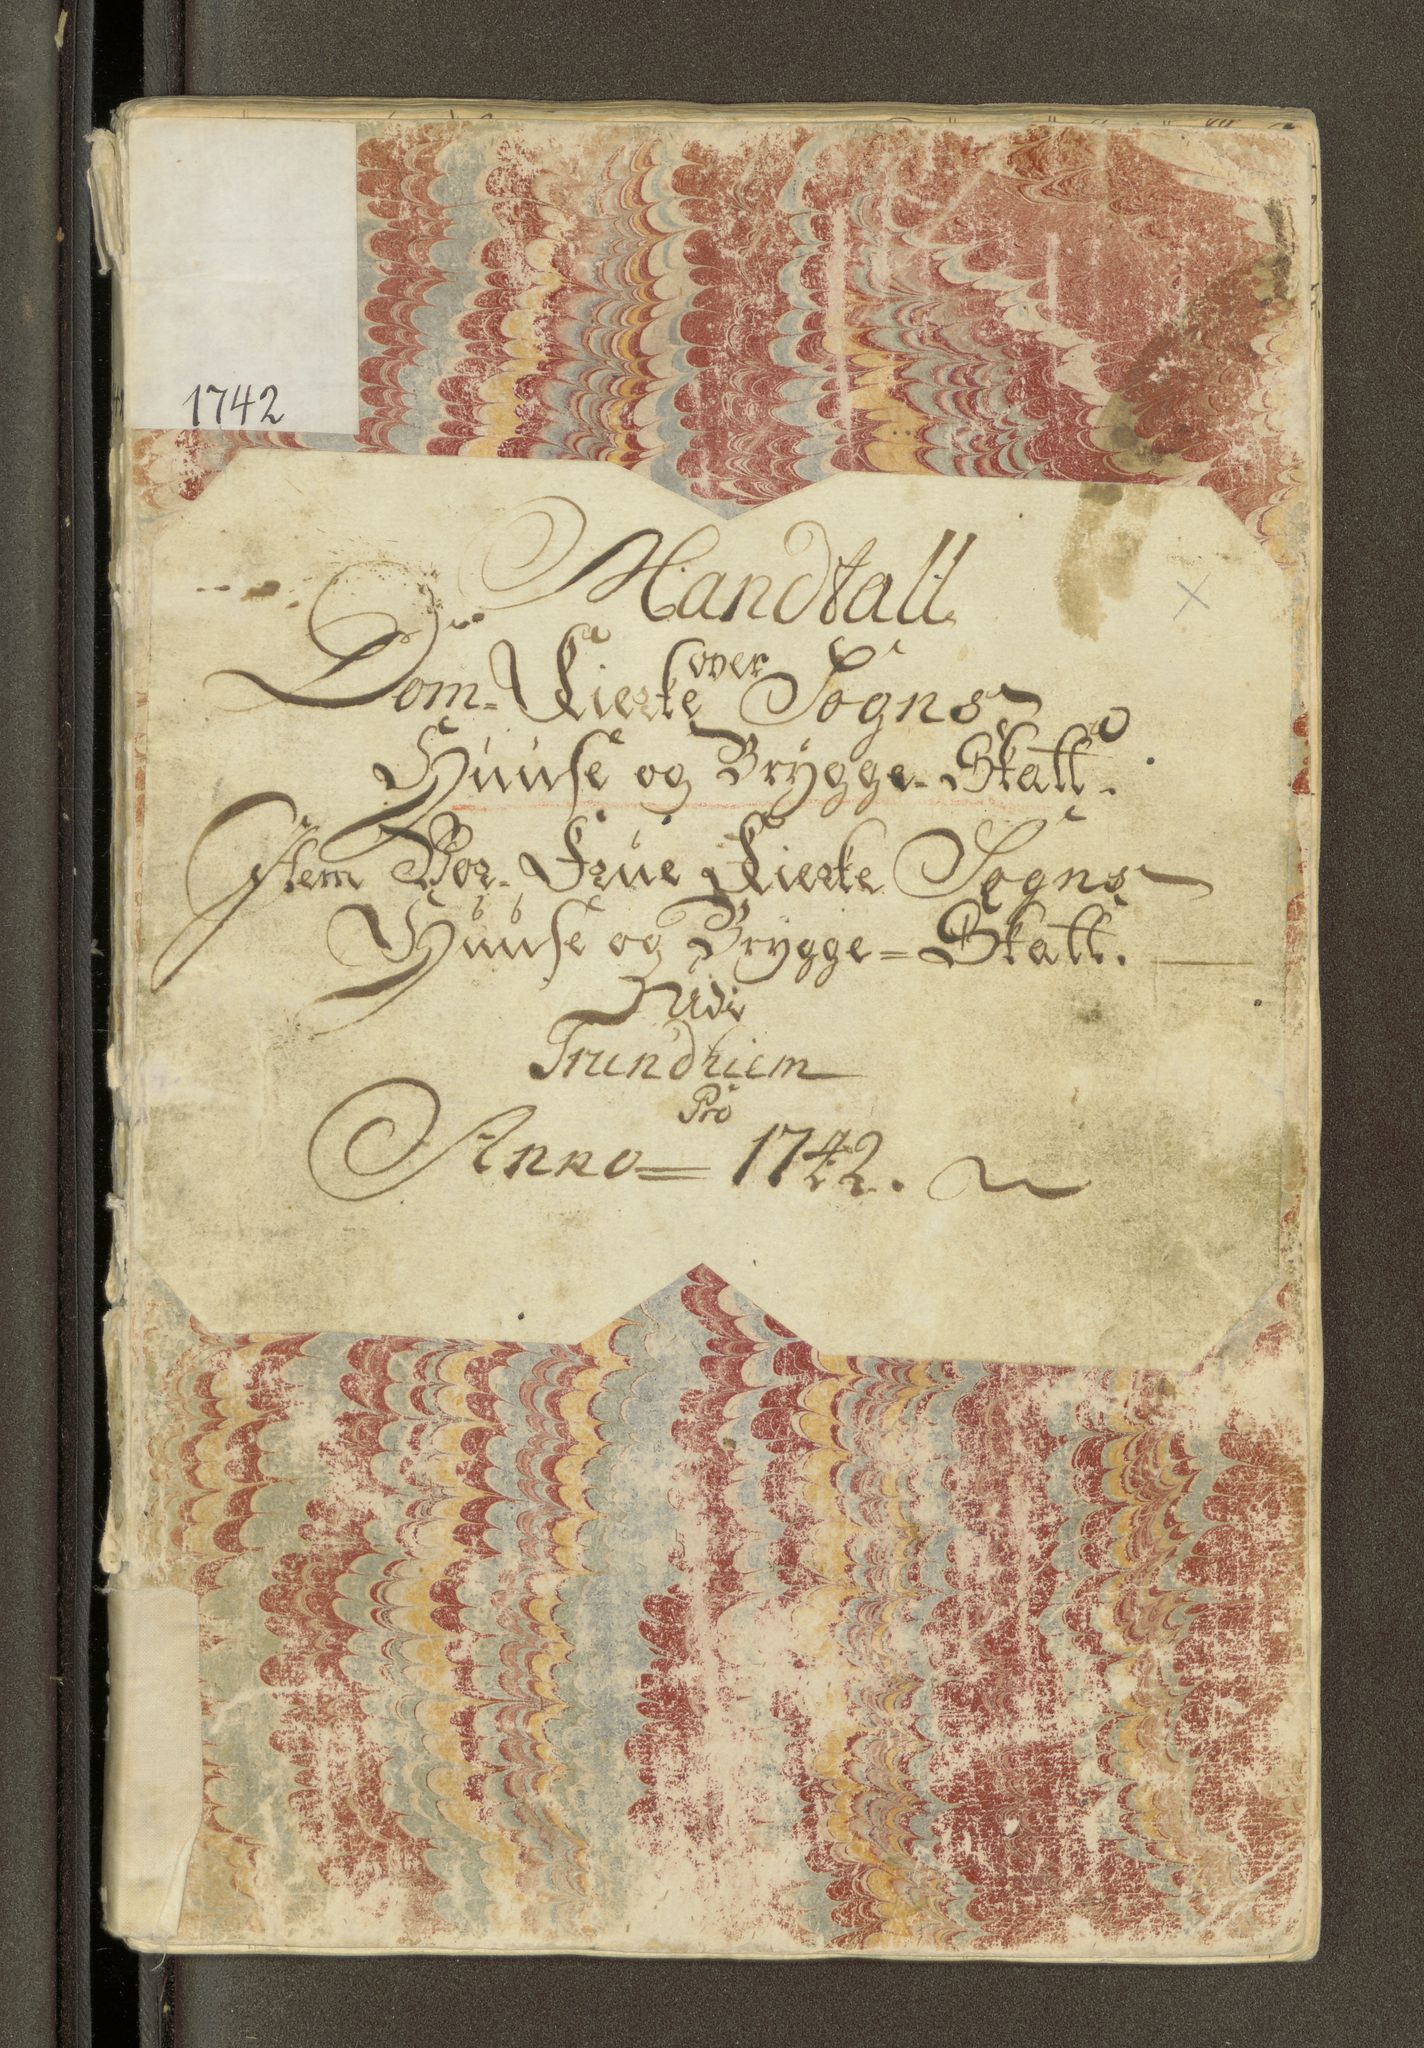 1742
Mandtall
over
Dom-Kierke Sogns
Huuse og Brygge-Skatt.
Item Vor-Frue Kierke Sogns
Huuse og Brygge=Skatt.
Udi
Trundhiem
Pro
Anno=1742.